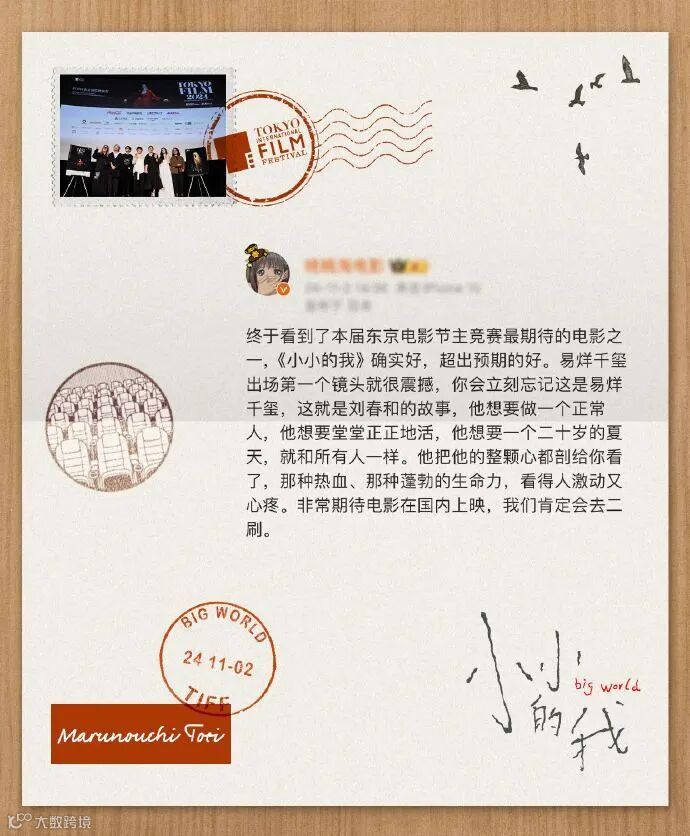 TOKYO
FILM
2024
TOKYO
INTERNATIONAL
FILM
FESTIVAL
终于看到了本届东京电影节主竞赛最期待的电影之
一，《小小的我》确实好，超出预期的好。易烊千玺
出场第一个镜头就很震撼，你会立刻忘记这是易烊
千玺，这就是刘春和的故事，他想要做一个正常
人，他想要堂堂正正地活，他想要一个二十岁的夏
天，就和所有人一样。他把他的整颗心都剖给你看
了，那种热血、那种蓬勃的生命力，看得人激动又
心疼。非常期待电影在国内上映，我们肯定会去二
刷。
BIG WORLD
24 11-02
TIFF
Marunouchi Toei
小小
big world
的我
大数跨境